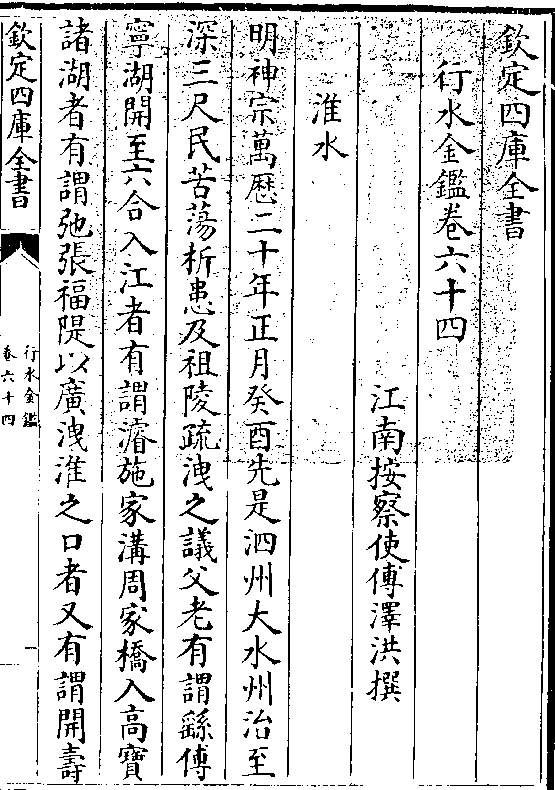 欽定四庫全書
行水金鑑卷六十四
江南按察使傅澤洪撰
淮水
明神宗萬歷二十年正月癸酉先是泗州大水州治至
深三尺民苦蕩析患及祖陵疏洩之議父老有謂繇傅
寧湖開至六合入江者有謂濬施家溝周家橋入高寶
諸湖者有謂弛張福隄以廣洩淮之口者又有謂開壽
欽定四庫全書
行水金鑑
卷六十四
一